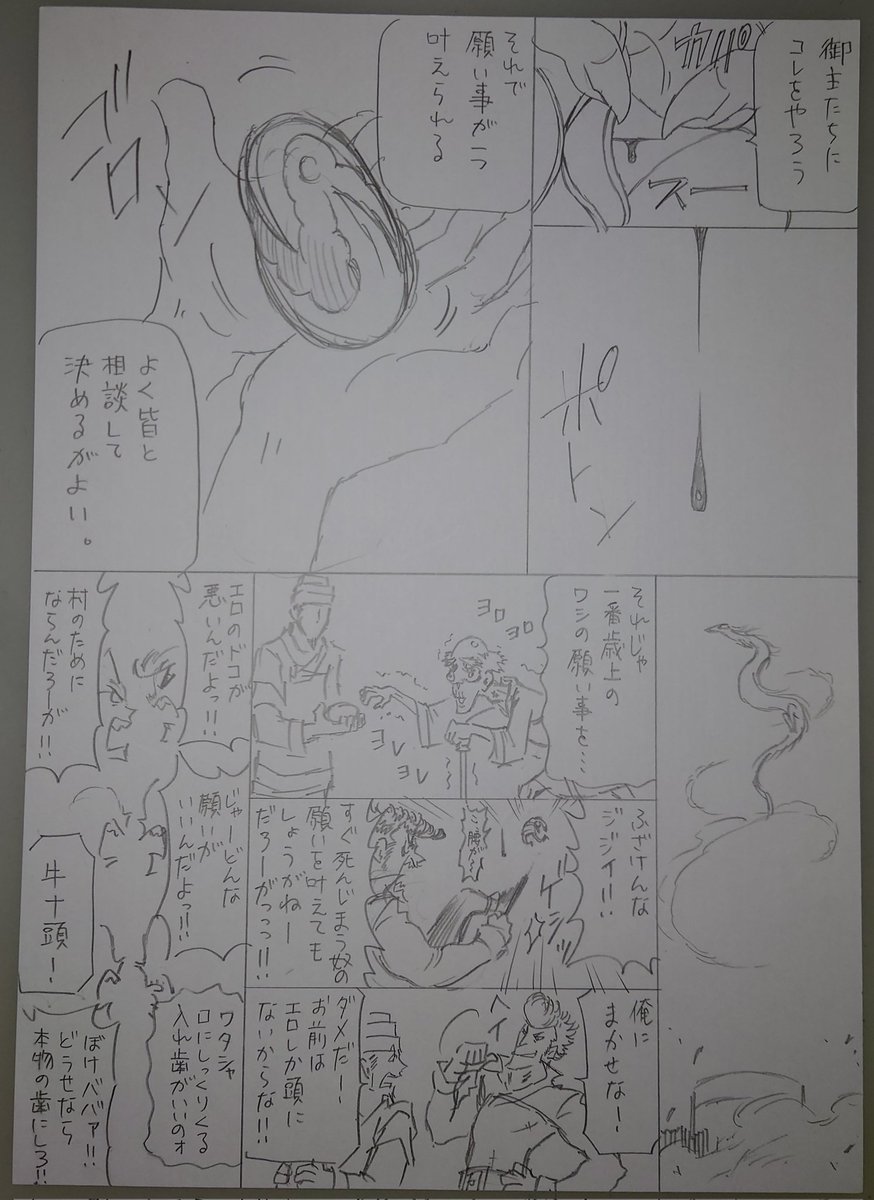 御主たちに
コレをやろう
カパ
スー
ポトン
それで
願い事が一つ
叶えられる
ゴロ
よく皆と
相談して
決めるがよい。
それじゃ
一番歳上の
ワシの願い事を…
ヨロ
ヨロ
ヨレ
ヨレ
ふざけんな
ジジイ!!
ゲシッ
こ、腰が〜
すぐ死んじまう奴の
願いを叶えても
しょうがねー
だろーがっっっ!!
俺に
まかせな!
ヘイ
ダメだー
お前は
エロしか頭に
ないからな!!
エロのドコが
悪いんだよっ!!
村のために
ならんだろーが!!
じゃーどんな
願いが
いいんだよっ!!
牛十頭!
ワタシャ
口にしっくりくる
入れ歯がいいのォ
ぼけババァ!!
どうせなら
本物の歯にしろ!!